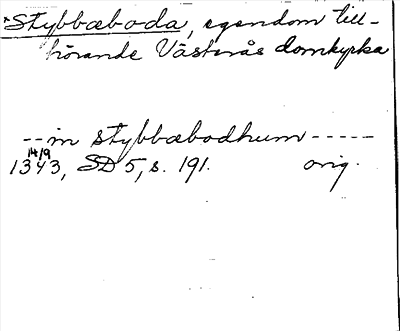 *Stybbæboda, egendom till-
hörande Västerås domkyrka
-- in stybbæbodhum -----
14/9
1343, SD 5, s. 191. orig.